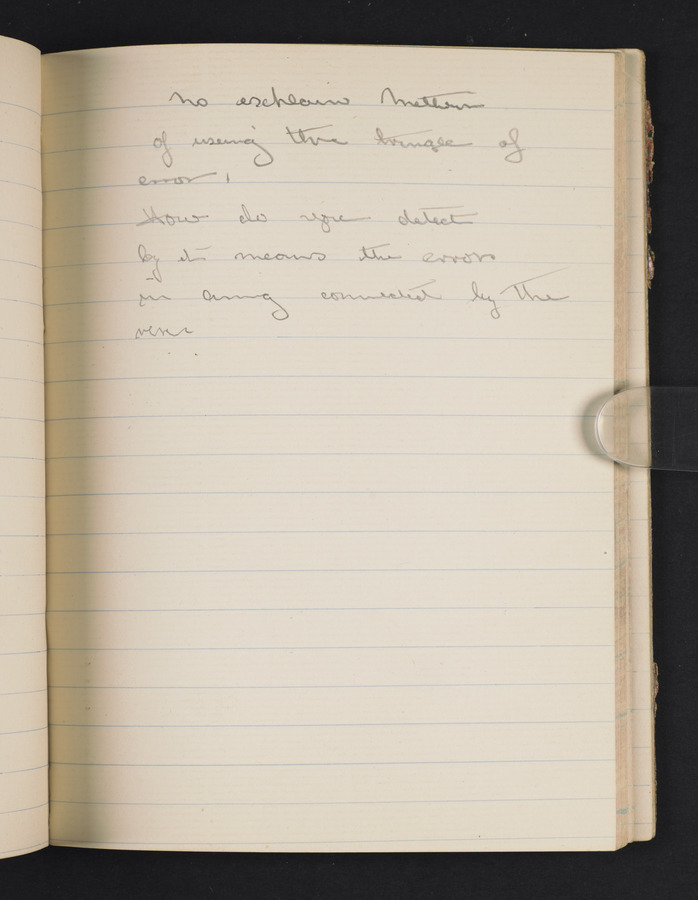 no explain method
of using the triangle of
error,
How do you detect
by its means the errors
in connected by the